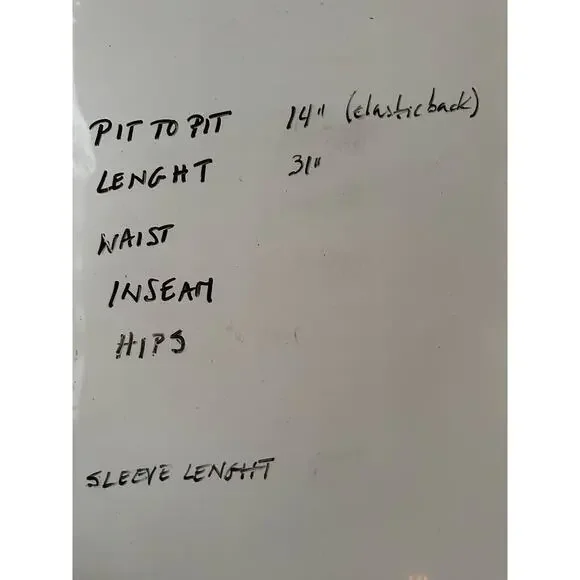 PIT TO PIT 14" (elastic back)
LENGHT 31"
WAIST
INSEAM
HIPS
SLEEVE LENGHT